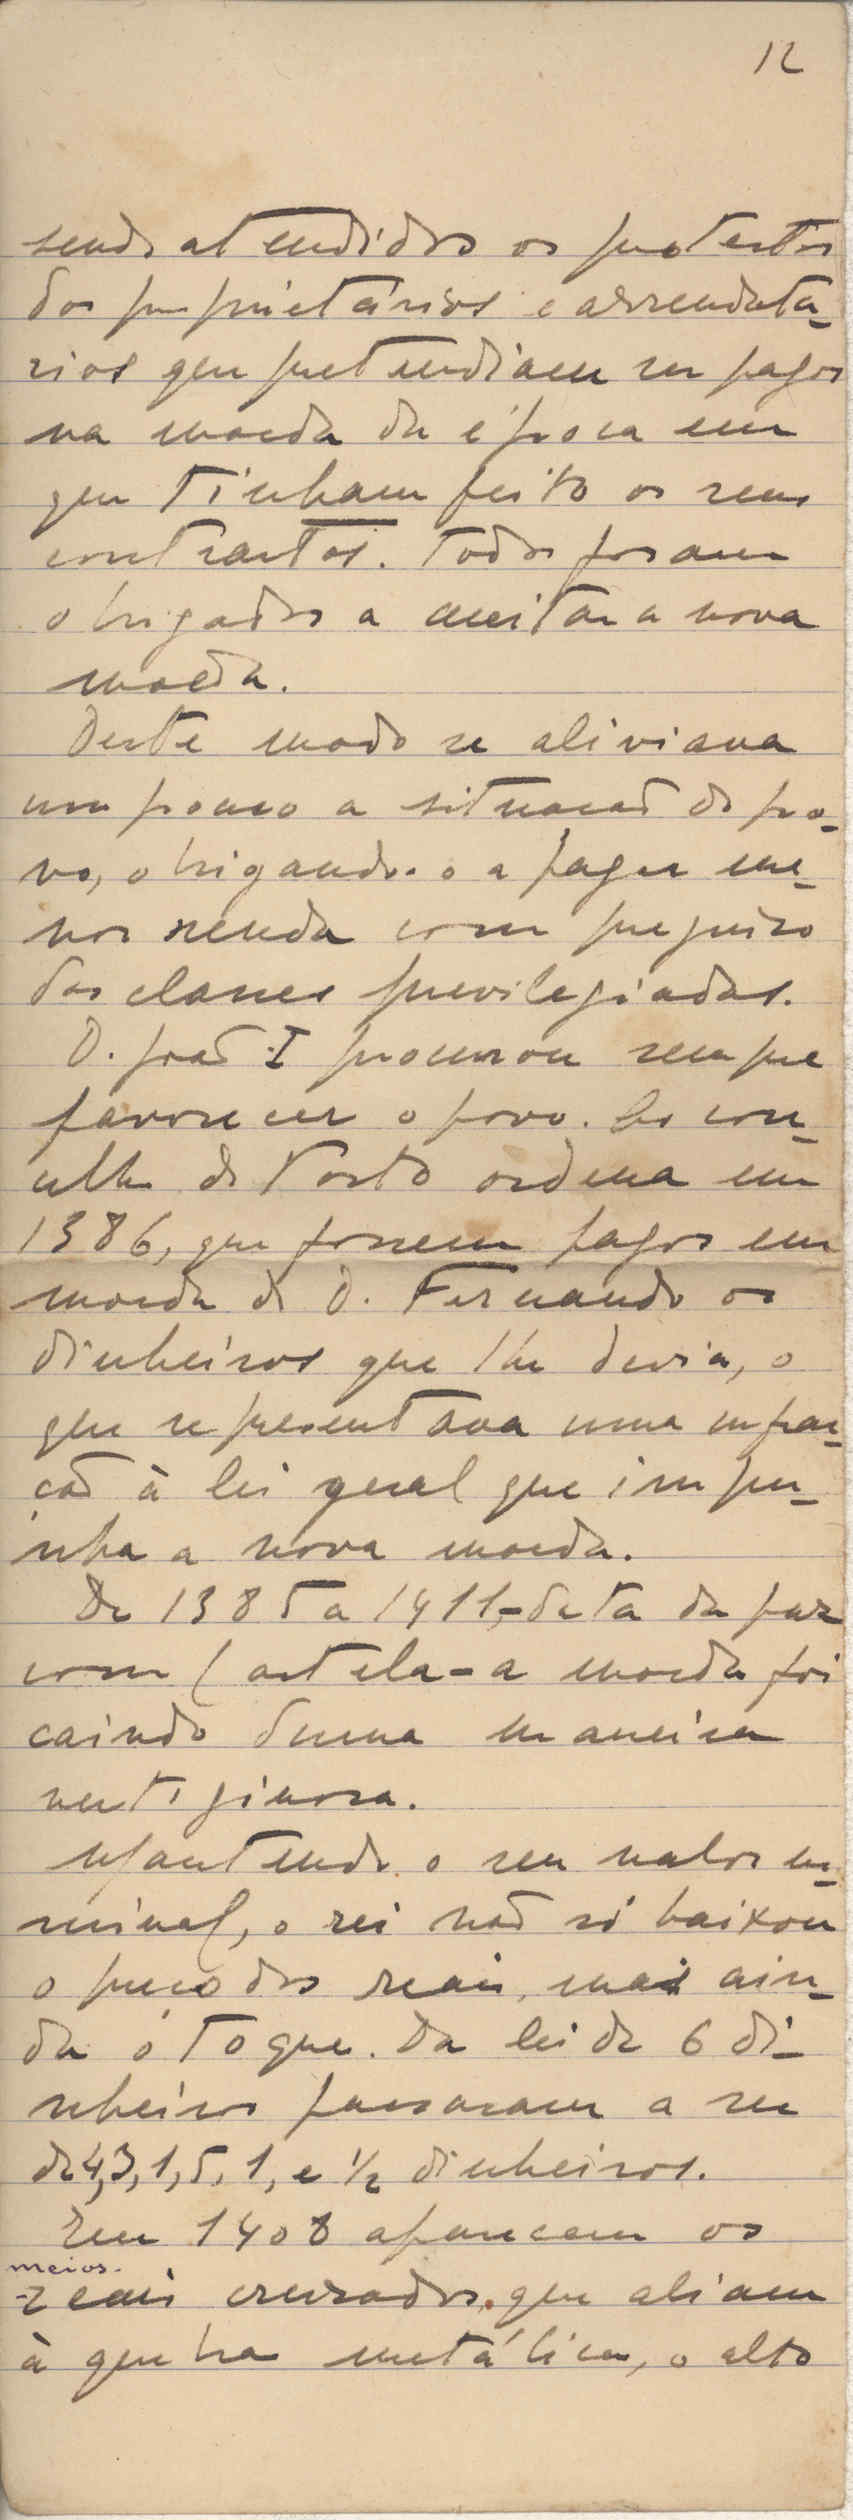 12
sendo atendidos os protestos
dos proprietários e arrendatá-
rios que pretendiam ser pagos
na moeda da época em
que tinham feito os seus
contractos. Todos foram
obrigados a aceitar a nova
moeda.
Deste modo se aliviava
um pouco a situação do po-
vo, obrigando-o a pagar me-
nor renda com prejuizo
das classes previlegiadas.
D. João I procurou sempre
favorecer o povo. Ao con-
celho do Porto ordena em
1386, que fossem pagos em
moeda de D. Fernando os
dinheiros que lhe devia, o
que representava uma infrac-
ção à lei geral que impu-
nha a nova moeda.
De 1385 a 1411,-data da paz
com Castela-a moeda foi
caindo duma maneira
vertiginosa.
Mantendo o seu valor no-
minal, o rei não só baixou
o preço dos reais, mais ain-
da o toque. Da lei de 6 di-
nheiros passaram a ser
de 4,3,1,5, 1, e ½ dinheiros.
Em 1408 aparecem os
meios.
reais cruzados, que aliam
à quebra metálica, o alto